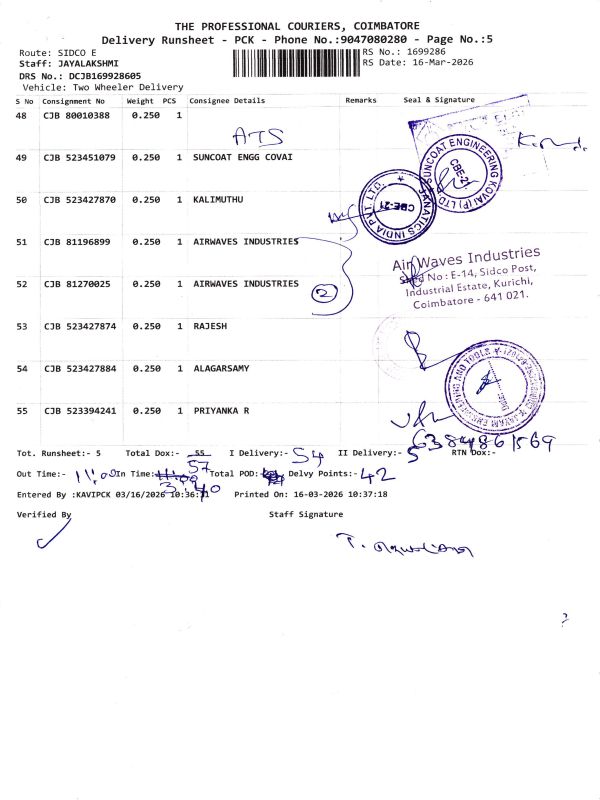 THE PROFESSIONAL COURIERS, COIMBATORE
Delivery Runsheet - PCK - Phone No.:9047080280 - Page No.:5
Route: SIDCO E
RS No.: 1699286
Staff: JAYALAKSHMI
RS Date: 16-Mar-2026
DRS No.: DCJB169928605
Vehicle: Two Wheeler Delivery
S No Consignment No Weight PCS Consignee Details Remarks Seal & Signature
48 CJB 80010388 0.250 1
ATS
49 CJB 523451079 0.250 1 SUNCOAT ENGG COVAI
SUNCOAT ENGINEERING KOVAI (P) LTD
CBE-21
50 CJB 523427870 0.250 1 KALIMUTHU
JANATICS INDIA PVT. LTD.
CBE-21
51 CJB 81196899 0.250 1 AIRWAVES INDUSTRIES
Air Waves Industries
Shed No : E-14, Sidco Post,
Industrial Estate, Kurichi,
Coimbatore - 641 021.
52 CJB 81270025 0.250 1 AIRWAVES INDUSTRIES
2
53 CJB 523427874 0.250 1 RAJESH
54 CJB 523427884 0.250 1 ALAGARSAMY
55 CJB 523394241 0.250 1 PRIYANKA R
6384861569
Tot. Runsheet:- 5 Total Dox:- 55 I Delivery:- 54 II Delivery:- 5 RTN Dox:-
57
Out Time:- 11:00 In Time: 11:00 Total POD: Delvy Points:- 42
3:40
Entered By :KAVIPCK 03/16/2026 10:36:31 Printed On: 16-03-2026 10:37:18
Verified By Staff Signature